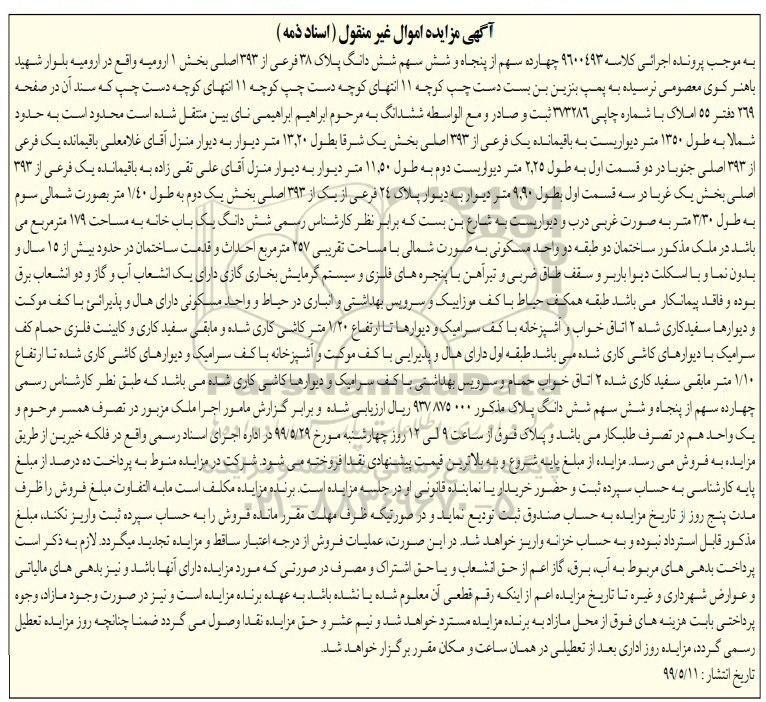 آگهی مزایده اموال غیر منقول ( اسناد ذمه )
به موجب پرونده اجرائی کلاسه ۹۶۰۰۴۹۳ چهارده سهم از پنجاه و شش سهم شش دانگ پلاک ۳۸ فرعی از ۳۹۳ اصلی بخش ۱ ارومیه واقع در ارومیه بلوار شهید
باهنر کوی معصومی نرسیده به پمپ بنزین بن بست دست چپ کوچه ۱۱ انتهای کوچه دست چپ کوچه ۱۱ انتهای کوچه دست چپ که سند آن در صفحه
۲۶۹ دفتر ۵۵ املاک با شماره چاپی ۳۷۳۲۸۶ ثبت و صادر و مع الواسطه ششدانگ به مرحوم ابراهیم ابراهیمی نای بین منتقل شده است محدود است به حدود
شمالا به طول ۱۳۵۰ متر دیواریست به باقیمانده یک فرعی از ۳۹۳ اصلی بخش یک شرقا بطول ۱۳,۲۰ متر دیوار به دیوار منزل آقای غلامعلی باقیمانده یک فرعی
از ۳۹۳ اصلی جنوبا در دو قسمت اول به طول ۲,۲۵ متر دیواریست دوم به طول ۱۱,۵۰ متر دیوار به دیوار منزل آقای علی تقی زاده به باقیمانده یک فرعی از ۳۹۳
اصلی بخش یک غربا در سه قسمت اول بطول ۹,۹۰ متر دیوار به دیوار پلاک ۲۴ فرعی از یک از ۳۹۳ اصلی بخش یک دوم به طول ۱/۴۰ متر بصورت شمالی سوم
به طول ۳/۳۰ متر به صورت غربی درب و دیواریست به شارع بن بست که برابر نظر کارشناس رسمی شش دانگ یک باب خانه به مساحت ۱۷۹ مترمربع می
باشد در ملک مذکور ساختمان دو طبقه دو واحد مسکونی به صورت شمالی با مساحت تقریبی ۲۵۷ مترمربع احداث و قدمت ساختمان در حدود بیش از ۱۵ سال و
بدون نما و با اسکلت دیوا باربر و سقف طاق ضربی و تیرآهن با پنجره های فلزی و سیستم گرمایش بخاری گازی دارای یک انشعاب آب و گاز و دو انشعاب برق
بوده و فاقد پیمانکار می باشد طبقه همکف حیاط با کف موزاییک و سرویس بهداشتی و انباری در حیاط و واحد مسکونی دارای هال و پذیرائی با کف موکت
و دیوارها سفیدکاری شده ۲ اتاق خواب و آشپزخانه با کف سرامیک و دیوارها تا ارتفاع ۱/۲۰ متر کاشی کاری شده و مابقی سفید کاری و کابینت فلزی حمام کف
سرامیک با دیوارهای کاشی کاری شده می باشد طبقه اول دارای هال و پذیرایی با کف موکت و آشپزخانه با کف سرامیک و دیوارهای کاشی کاری شده تا ارتفاع
۱/۱۰ متر مابقی سفید کاری شده ۲ اتاق خواب حمام و سرویس بهداشتی با کف سرامیک و دیوارها کاشی کاری شده می باشد که طبق نظر کارشناس رسمی
چهارده سهم از پنجاه و شش سهم شش دانگ پلاک مذکور ۹۳۷۸۷۵۰۰۰ ریال ارزیابی شده و برابر گزارش مامور اجرا ملک مزبور در تصرف همسر مرحوم و
یک واحد هم در تصرف طلبکار می باشد و پلاک فوق از ساعت ۹ الی ۱۲ روز چهارشنبه مورخ ۹۹/۵/۲۹ در اداره اجرای اسناد رسمی واقع در فلکه خیرین از طریق
مزایده به فروش می رسد. مزایده از مبلغ پایه شروع و به بالاترین قیمت پیشنهادی نقدا فروخته می شود. شرکت در مزایده منوط به پرداخت ده درصد از مبلغ
پایه کارشناسی به حساب سپرده ثبت و حضور خریدار یا نماینده قانونی او در جلسه مزایده است. برنده مزایده مکلف است مابه التفاوت مبلغ فروش را ظرف
مدت پنج روز از تاریخ مزایده به حساب صندوق ثبت تودیع نماید و در صورتیکه ظرف مهلت مقرر مانده فروش را به حساب سپرده ثبت واریز نکند، مبلغ
مذکور قابل استرداد نبوده و به حساب خزانه واریز خواهد شد. در این صورت، عملیات فروش از درجه اعتبار ساقط و مزایده تجدید میگردد. لازم به ذکر است
پرداخت بدهی های مربوط به آب، برق، گاز اعم از حق انشعاب و یا حق اشتراک و مصرف در صورتی که مورد مزایده دارای آنها باشد و نیز بدهی های مالیاتی
و عوارض شهرداری و غیره تا تاریخ مزایده اعم از اینکه رقم قطعی آن معلوم شده یا نشده باشد به عهده برنده مزایده است و نیز در صورت وجود مازاد، وجوه
پرداختی بابت هزینه های فوق از محل مازاد به برنده مزایده مسترد خواهد شد و نیم عشر و حق مزایده نقدا وصول می گردد ضمنا چنانچه روز مزایده تعطیل
رسمی گردد، مزایده روز اداری بعد از تعطیلی در همان ساعت و مکان مقرر برگزار خواهد شد.
تاریخ انتشار : ۹۹/۵/۱۱
ParsNamadData
۰۲۱-۸۸۳۴۹۶۷۰-۵